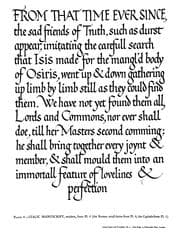 FROM THAT TIME EVER SINCE,
the sad friends of Truth, such as durst
appear, imitating the carefull search
that Isis made for the mangl'd body
of Osiris, went up & down gathering
up limb by limb still as they could find
them. We have not yet found them all,
Lords and Commons, nor ever shall
doe, till her Masters second comming;
he shall bring together every joynt &
member, & shall mould them into an
immortall feature of lovelines &
perfection